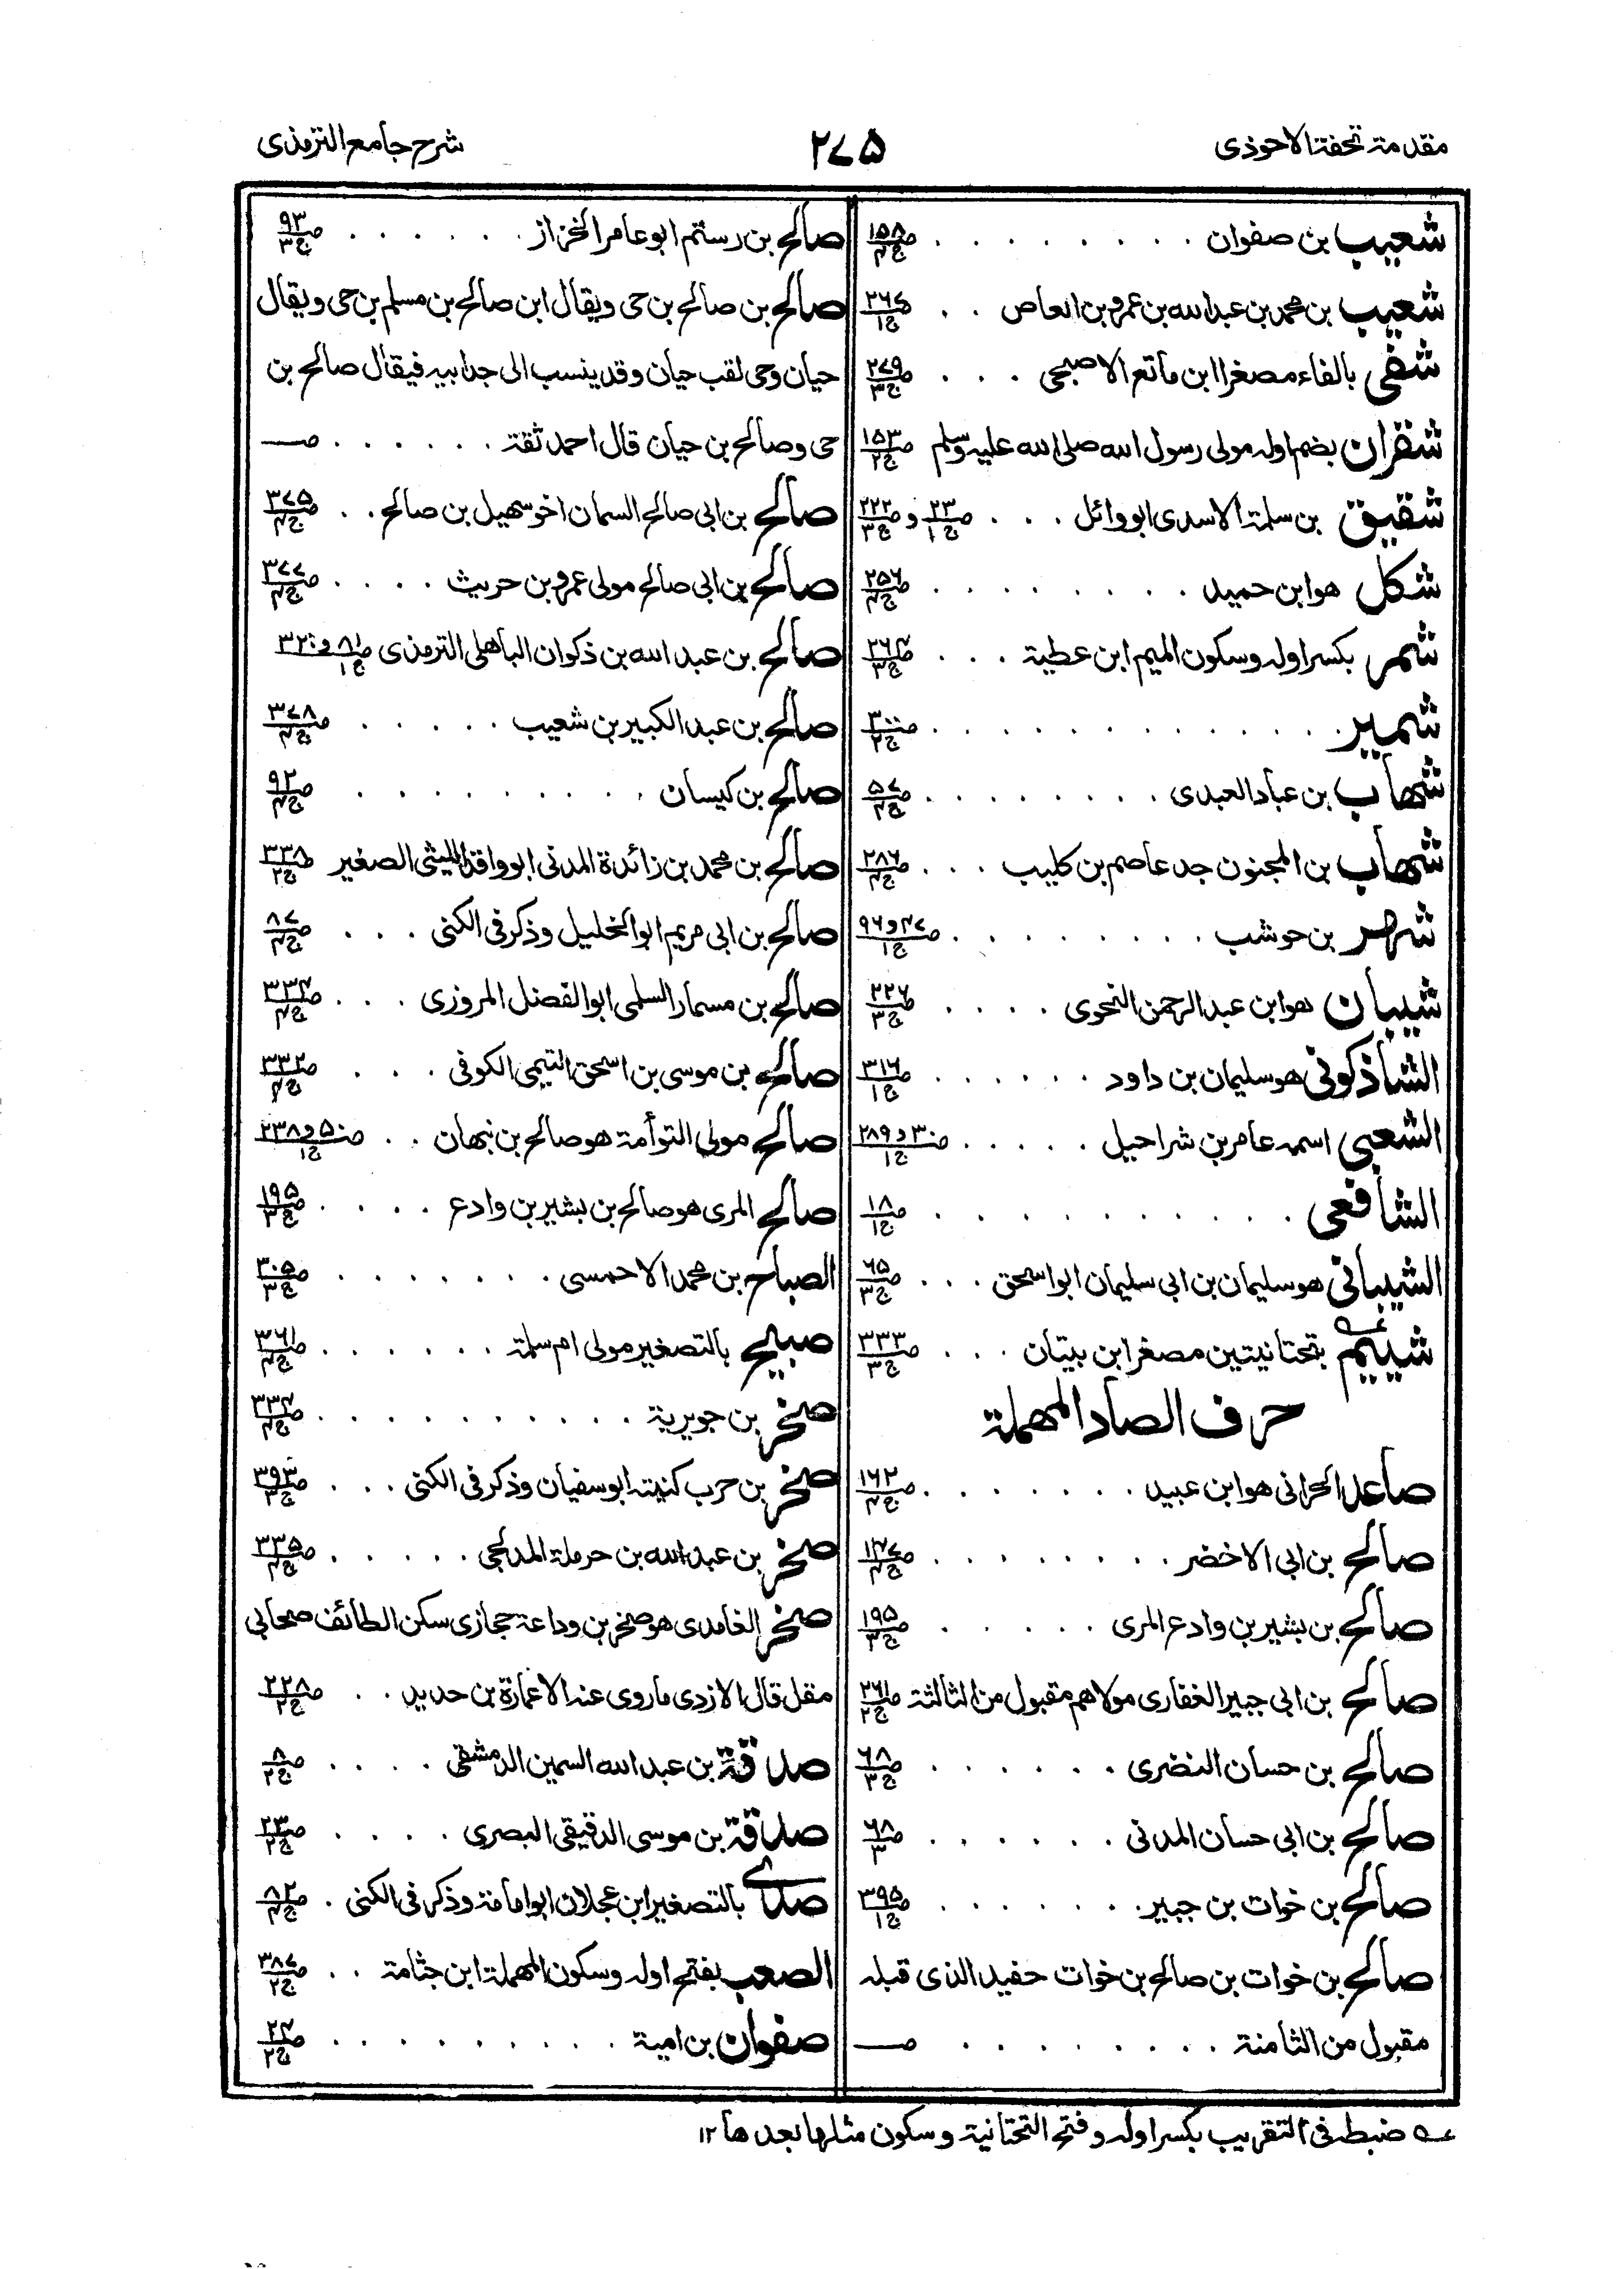 مقدمة تحفة الاحوذی
۲۷۵
شرح جامع الترمذی
شعیب بن صفوان . . . . . . . . ص۱۵۸ ج۴
شعیب بن محمد بن عبد الله بن عمرو بن العاص . . ص۲۶۷ ج۱
شفی بالفاء مصغرا ابن ماتع الاصبحی . . . . ص۲۷۹ ج۳
شقران بضم اوله مولی رسول الله صلی الله علیه وسلم ص۱۵۳ ج۲
شقیق بن سلمة الاسدی ابو وائل . . . ص۲۳ ج۱ و ص۲۲۲ ج۳
شکل هو ابن حمید . . . . . . . . ص۲۵۶ ج۴
شمر بکسر اوله وسکون المیم ابن عطیة . . . ص۲۶۴ ج۳
شمیر . . . . . . . . . . . . ص۳۰۰ ج۲
شهاب بن عباد العبدی . . . . . . . . ص۵۷ ج۴
شهاب بن المجنون جد عاصم بن کلیب . . . ص۲۸۶ ج۴
شهر بن حوشب . . . . . . . . ص۴۷ و ۹۶ ج۱
شیبان هو ابن عبد الرحمن النحوی . . . . ص۲۲۶ ج۳
الشاذکونی هو سلیمان بن داود . . . . . . ص۳۱۶ ج۱
الشعبی اسمه عامر بن شراحیل . . . . . ص۳۰ و ۲۸۹ ج۱
الشافعی . . . . . . . . . . ص۱۸ ج۱
الشیبانی هو سلیمان بن ابی سلیمان ابو اسحق . . . ص۶۵ ج۳
شییم عه بتحتانیتین مصغر ابن بیتان . . . ص۳۳۳ ج۳
حرف الصاد المهملة
صاعد الحرانی هو ابن عبید . . . . . . . ص۱۶۲ ج۴
صالح بن ابی الاخضر . . . . . . . . ص۱۴۷ ج۴
صالح بن بشیر بن وادع المری . . . . . ص۱۹۵ ج۳
صالح بن ابی جبیر الغفاری مولاهم مقبول من الثالثة ص۲۶۱ ج۲
صالح بن حسان النضری . . . . . . ص۶۸ ج۳
صالح بن ابی حسان المدنی . . . . . . ص۶۸ ۳
صالح بن خوات بن جبیر . . . . . . . ص۳۹۵ ج۱
صالح بن خوات بن صالح بن خوات حفید الذی قبله
مقبول من الثامنة . . . . . . . . ص
صالح بن رستم ابو عامر الخزاز . . . . . . ص۹۳ ج۳
صالح بن صالح بن حی ویقال ابن صالح بن مسلم بن حی ویقال
حیان وحی لقب حیان وقد ینسب الی جد ابیه فیقال صالح بن
حی وصالح بن حیان قال احمد ثقة . . . . . . ص
صالح بن ابی صالح السمان اخو سهیل بن صالح . . ص۳۷۵ ج۴
صالح بن ابی صالح مولی عمرو بن حریث . . . . ص۳۷۷ ج۴
صالح بن عبد الله بن ذکوان الباهلی الترمذی ص۸۱ و ۳۲۰ ج۱
صالح بن عبد الکبیر بن شعیب . . . . . ص۳۷۸ ج۴
صالح بن کیسان . . . . . . . . . ص۹۲ ج۴
صالح بن محمد بن زائدة المدنی ابو واقد اللیثی الصغیر ص۳۳۸ ج۲
صالح بن ابی مریم ابو الخلیل وذکر فی الکنی . . . ص۸۷ ج۴
صالح بن مسمار السلمی ابو الفضل المروزی . . . ص۳۳۴ ج۴
صالح بن موسی بن اسحق التیمی الکوفی . . . ص۳۳۲ ج۴
صالح مولی التوأمة هو صالح بن نبهان . . ص۵۰ و ۲۳۸ ج۱
صالح المری هو صالح بن بشیر بن وادع . . . . ص۱۹۵ ج۳
الصباح بن محمد الاحمسی . . . . . . . ص۳۰۵ ج۳
صبیح بالتصغیر مولی ام سلمة . . . . . . ص۳۶۱ ج۴
صخر بن جویریة . . . . . . . . . ص۳۳۴ ج۴
صخر بن حرب کنیته ابو سفیان وذکر فی الکنی . . . ص۳۹۳ ج۳
صخر بن عبد الله بن حرملة المدلجی . . . . . ص۳۳۵ ج۴
صخر الغامدی هو صخر بن وداعة حجازی سکن الطائف صحابی
مقل قال الازدی ماروی عنه الا عمارة بن حدید . . ص۲۲۸ ج۲
صدقة بن عبد الله السمین الدمشقی . . . . ص۸ ج۲
صدقة بن موسی الدقیقی البصری . . . . ص۲۳ ج۲
صدی بالتصغیر ابن عجلان ابو امامة وذکر فی الکنی . ص۸۲ ج۴
الصعب بفتح اوله وسکون المهملة ابن جثامة . . ص۳۸۷ ج۲
صفوان بن امیة . . . . . . . . . ص۲۴ ج۲
عه ضبطه فی التقریب بکسر اوله وفتح التحتانیة وسکون مثلها بعدها ۱۲